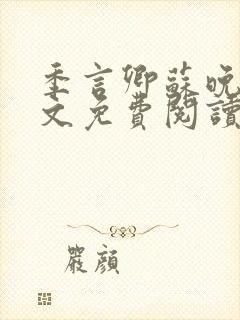 季言卿蘇晚
文免費閱讀
嚴顏